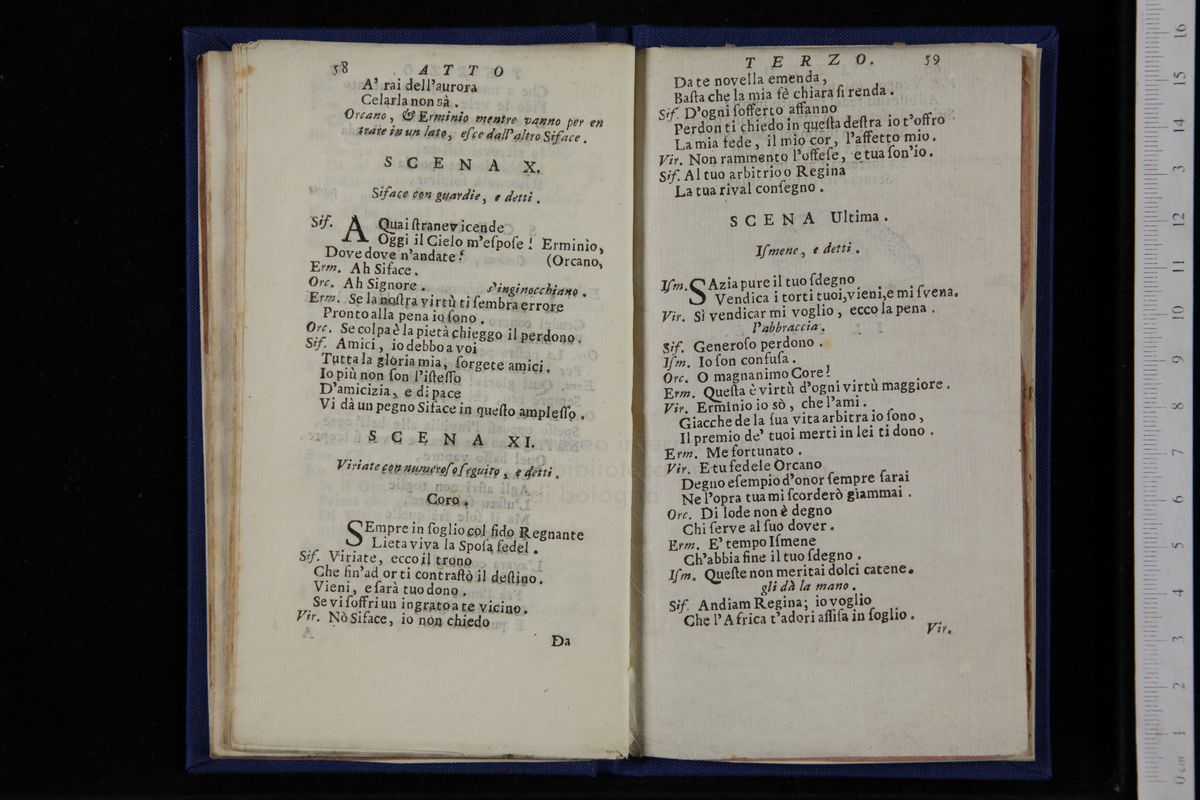 58 ATTO
A' rai dell'aurora
Celarla non sà.
Orcano, & Erminio mentre vanno per en
trare in un lato, eſce dall'altro Siface.
SCENA X.
Siface con guardie, e detti.
Sif. A Quai ſtrane vicende
Oggi il Cielo m'eſpoſe! Erminio,
Dove dove n'andate? (Orcano,
Erm. Ah Siface.
Orc. Ah Signore. s'inginocchiano.
Erm. Se la noſtra virtù ti ſembra errore
Pronto alla pena io ſono.
Orc. Se colpa è la pietà chieggo il perdono.
Sif. Amici, io debbo a voi
Tutta la gloria mia, ſorgete amici.
Io più non ſon l'iſteſſo
D'amicizia, e di pace
Vi dà un pegno Siface in queſto ampleſſo.
SCENA XI.
Viriate con numeroſo ſeguito, e detti.
Coro.
SEmpre in ſoglio col fido Regnante
Lieta viva la Spoſa fedel.
Sif. Viriate, ecco il trono
Che fin'ad or ti contraſtò il deſtino.
Vieni, e ſarà tuo dono.
Se vi ſoffri un ingrato a te vicino.
Vir. Nò Siface, io non chiedo
Da
TERZO. 59
Da te novella emenda,
Baſta che la mia fè chiara ſi renda.
Sif. D'ogni ſofferto affanno
Perdon ti chiedo in queſta deſtra io t'offro
La mia fede, il mio cor, l'affetto mio.
Vir. Non rammento l'offeſe, e tua ſon'io.
Sif. Al tuo arbitrio o Regina
La tua rival conſegno.
SCENA Ultima.
Iſmene, e detti.
Iſm. SAzia pure il tuo ſdegno
Vendica i torti tuoi, vieni, e mi ſvena.
Vir. Sì vendicar mi voglio, ecco la pena.
l'abbraccia.
Sif. Generoſo perdono.
Iſm. Io ſon confuſa.
Orc. O magnanimo Core!
Erm. Queſta è virtù d'ogni virtù maggiore.
Vir. Erminio io sò, che l'ami.
Giacche de la ſua vita arbitra io ſono,
Il premio de' tuoi merti in lei ti dono.
Erm. Me fortunato.
Vir. E tu fedele Orcano
Degno eſempio d'onor ſempre ſarai
Ne l'opra tua mi ſcorderò giammai.
Orc. Di lode non è degno
Chi ſerve al ſuo dover.
Erm. E' tempo Iſmene
Ch'abbia fine il tuo ſdegno.
Iſm. Queſte non meritai dolci catene.
gli dà la mano.
Sif. Andiam Regina; io voglio
Che l'Africa t'adori aſſiſa in ſoglio.
Vir.